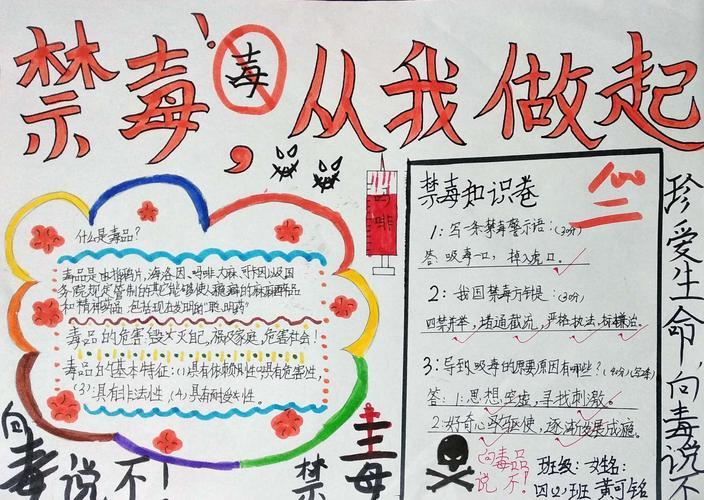 禁毒,从我做起
!
毒
什么是毒品?
毒品是
鸦片,海洛因、吗啡大麻,可卡因以及国
务院规定管制的其它能够使人瘾癖的麻醉药品
和精神药品
毒品的危害:毁灭灭自己,祸及家庭,危害社会!
毒品的基本特征:(1)具有依赖性(2)具有危害性,
(3):具有非法性,(4).具有耐受性。
向毒说不!
吗啡
禁毒知识卷
100
1:写一条禁毒警示语:(30分)
答:吸毒一口,掉入虎口。
2:我国禁毒方针是:(30分)
四禁并举,堵通截流,严格执法,标本兼治。
3:导致吸毒的原要原因有哪些?
答:1:思想空虚,寻找刺激。
2:好奇心驱使,逐渐发展成瘾。
向毒品
说不!
班级: 姓名:
四(2)班 黄可铭
珍爱生命,向毒说不
禁